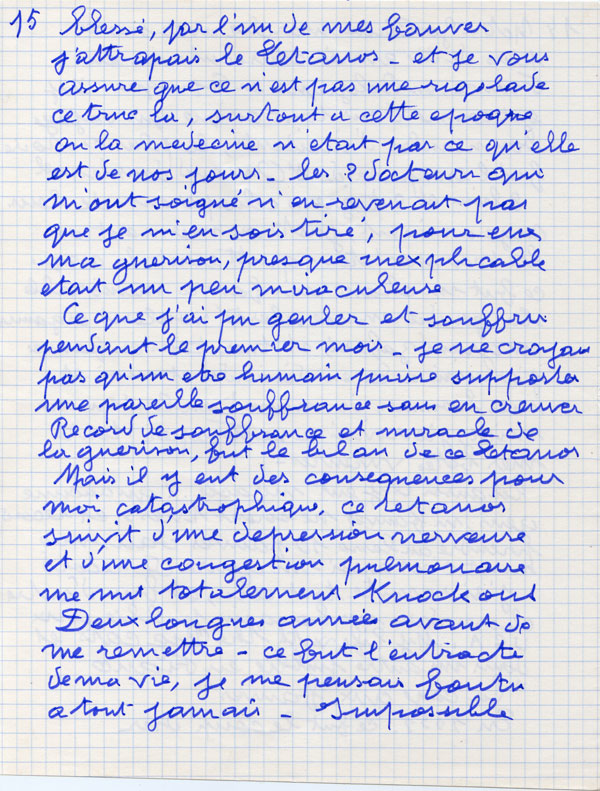 15 blessé, par l'un de mes fauves
j'attrapais le Tetanos - et je vous
assure que ce n'est pas une rigolade
ce truc la, surtout a cette epoque
ou la medecine n'était pas ce qu'elle
est de nos jours - les 2 docteurs qui
m'ont soigné n'en revenait pas
que je m'en sois tiré, pour eux
ma guerison, presque inexplicable
etait un peu miraculeuse
Ce que j'ai pu gueuler et souffrir
pendant le premier mois - je ne croyais
pas qu'un etre humain puisse supporter
une pareille souffrance sans en crever
Record de souffrance et miracle de
la guerison, fut le bilan de ce Tetanos
Mais il y eut des consequences pour
moi catastrophique, ce tetanos
suivit d'une depression nerveuse
et d'une congestion pulmonaire
me mit totalement Knock out
Deux longues années avant de
me remettre - ce fut l'entracte
de ma vie, je me pensais foutu
a tout jamais - Impossible